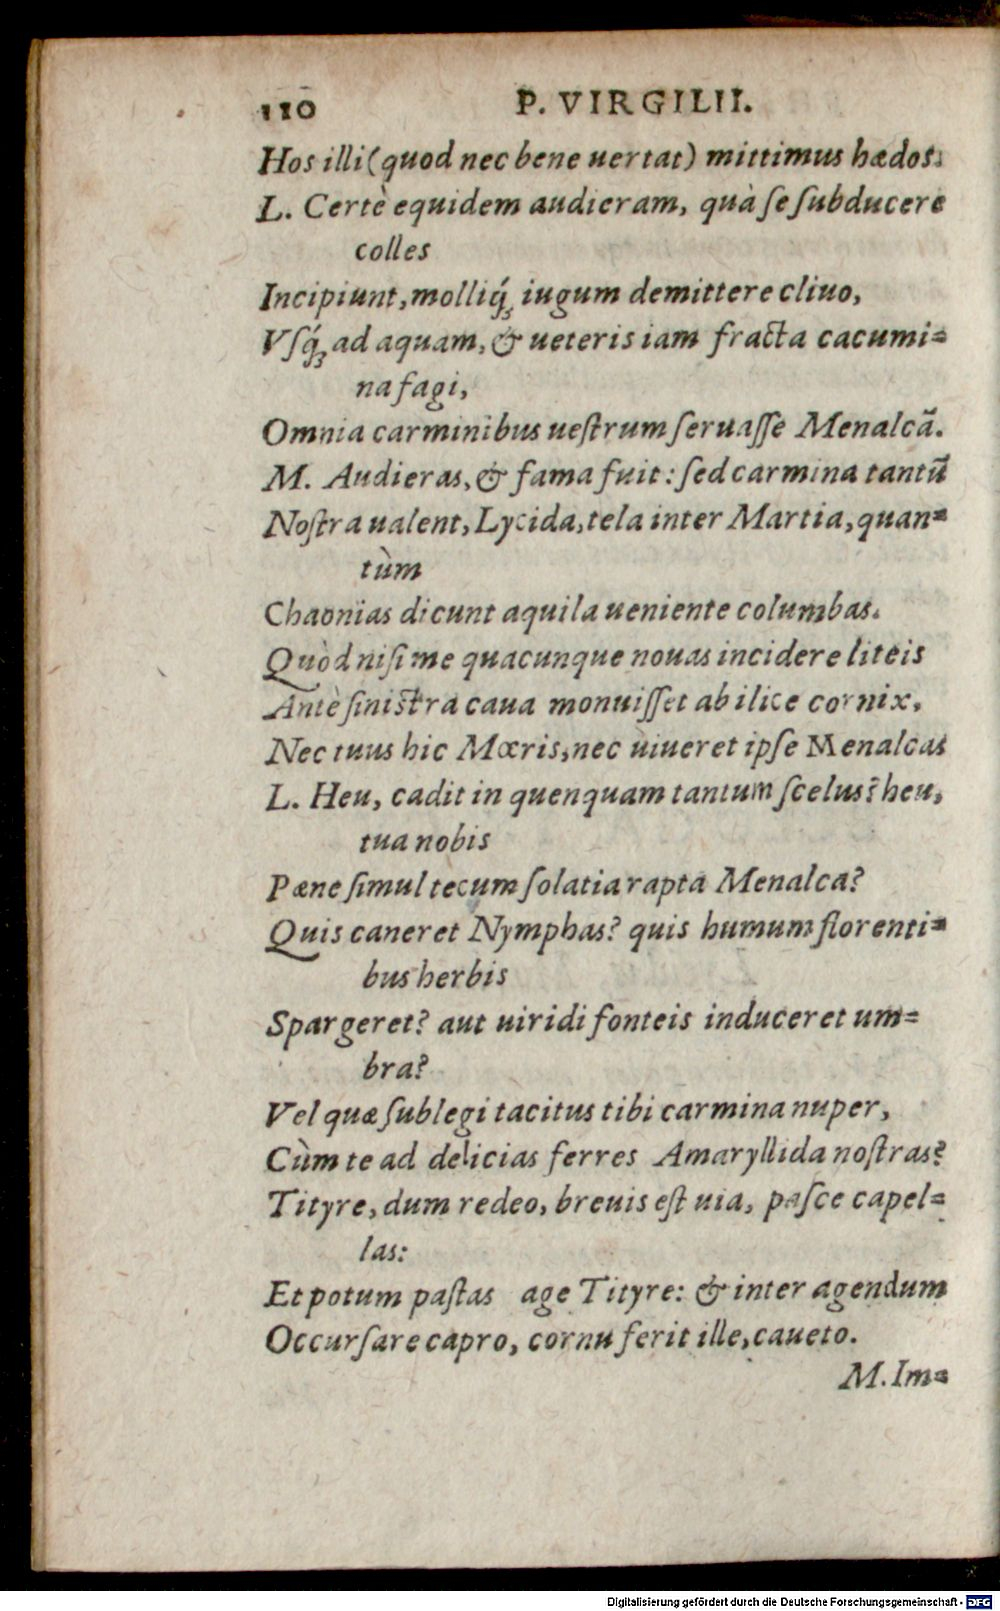 110 P. VIRGILII.
Hos illi (quod nec bene uertat) mittimus hædos.
L. Certè equidem audieram, quà ſe ſubducere
colles
Incipiunt, molliq́ꝫ iugum demittere cliuo,
Vſq́ꝫ ad aquam, & ueteris iam fracta cacumi=
na fagi,
Omnia carminibus ueſtrum ſeruaſſe Menalcã.
M. Audieras, & fama fuit: ſed carmina tantũ
Noſtra ualent, Lycida, tela inter Martia, quan=
tùm
Chaonias dicunt aquila ueniente columbas.
Quòd niſi me quacunque nouas incidere liteis
Antè ſiniſtra caua monuiſſet ab ilice cornix,
Nec tuus hic Mœris, nec uiueret ipſe Menalcas
L. Heu, cadit in quenquam tantum ſcelus? heu,
tua nobis
Pæne ſimul tecum ſolatia rapta Menalca?
Quis caneret Nymphas? quis humum florenti=
bus herbis
Spargeret? aut uiridi fonteis induceret um=
bra?
Vel quæ ſublegi tacitus tibi carmina nuper,
Cùm te ad delicias ferres Amaryllida noſtras?
Tityre, dum redeo, breuis eſt uia, paſce capel=
las:
Et potum paſtas age Tityre: & inter agendum
Occurſare capro, cornu ferit ille, caueto.
M. Im=
Digitalisierung gefördert durch die Deutsche Forschungsgemeinschaft - DFG